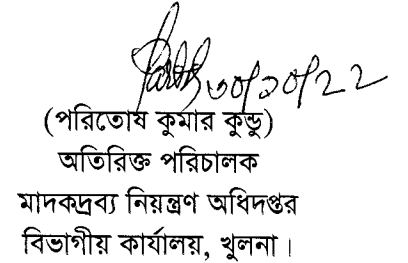 ৩০/১০/২২
(পরিতোষ কুমার কুন্ডু)
অতিরিক্ত পরিচালক
মাদকদ্রব্য নিয়ন্ত্রণ অধিদপ্তর
বিভাগীয় কার্যালয়, খুলনা।